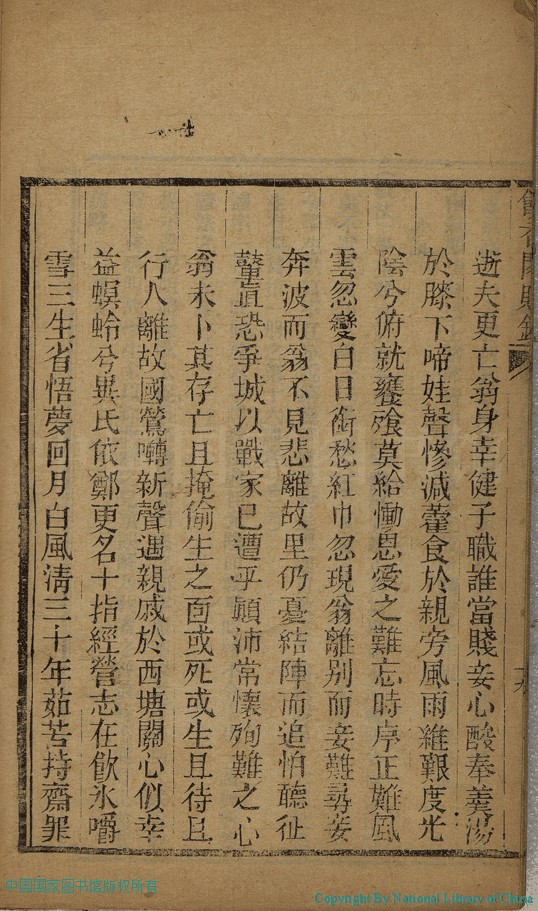 逝夫更亡翁身幸健子職誰當賤妾心酸奉羹湯
於膝下啼娃聲慘減藿食於親旁風雨維艱度光
陰兮俯就饔飱莫給慟恩愛之難忘時序正難風
雲忽變白日銜愁紅巾忽現翁離別而妾難尋妾
奔波而翁不見悲離故里仍憂結陣而追怕聽征
鼙直恐爭城以戰家已遭乎顛沛常懷殉難之心
翁未卜其存亡且掩偷生之面或死或生且待且
行人離故國鶯囀新聲遇親戚於西塘關心似幸
益螟蛉兮異氏依鄭更名十指經營志在飲氷嚼
雪三生省悟夢回月白風清三十年茹苦持齋罪
中国国家图书馆版权所有
Copyright By National Library of China